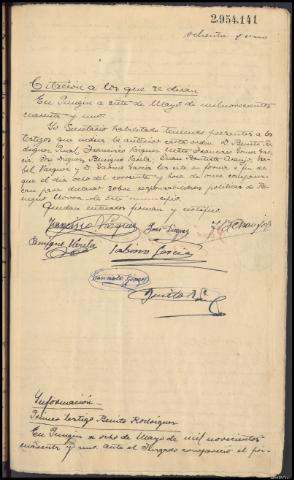 2.954.141
ochenta y uno
Citación a los que se dirán
En Pungin a siete de Mayo de mil novecientos
cuarenta y uno.
Yo Secretario habilitado teniendo presentes a los
testigos que indica la anterior orden D. Benito Ro-
driguez Francisco Vazquez Francisco
cia, Jose Enrique Varela, Juan Bautista Araujo,
bel Vazquez y D. Sabino Garcia les cite en forma a fin de
que el dia ocho del corriente y hora de once comparez-
can para declarar sobre responsabilidades politicas de
de este municipio.
Quedan enterados firman y certifico.
Francisco Vazquez
Jose
Araujo
Enrique Varela
Sabino Garcia
Benito R
Información
Primero testigo Benito Rodriguez
En Pungin a ocho de Mayo de mil novecientos
cuarenta y uno ante el Juzgado compareció el